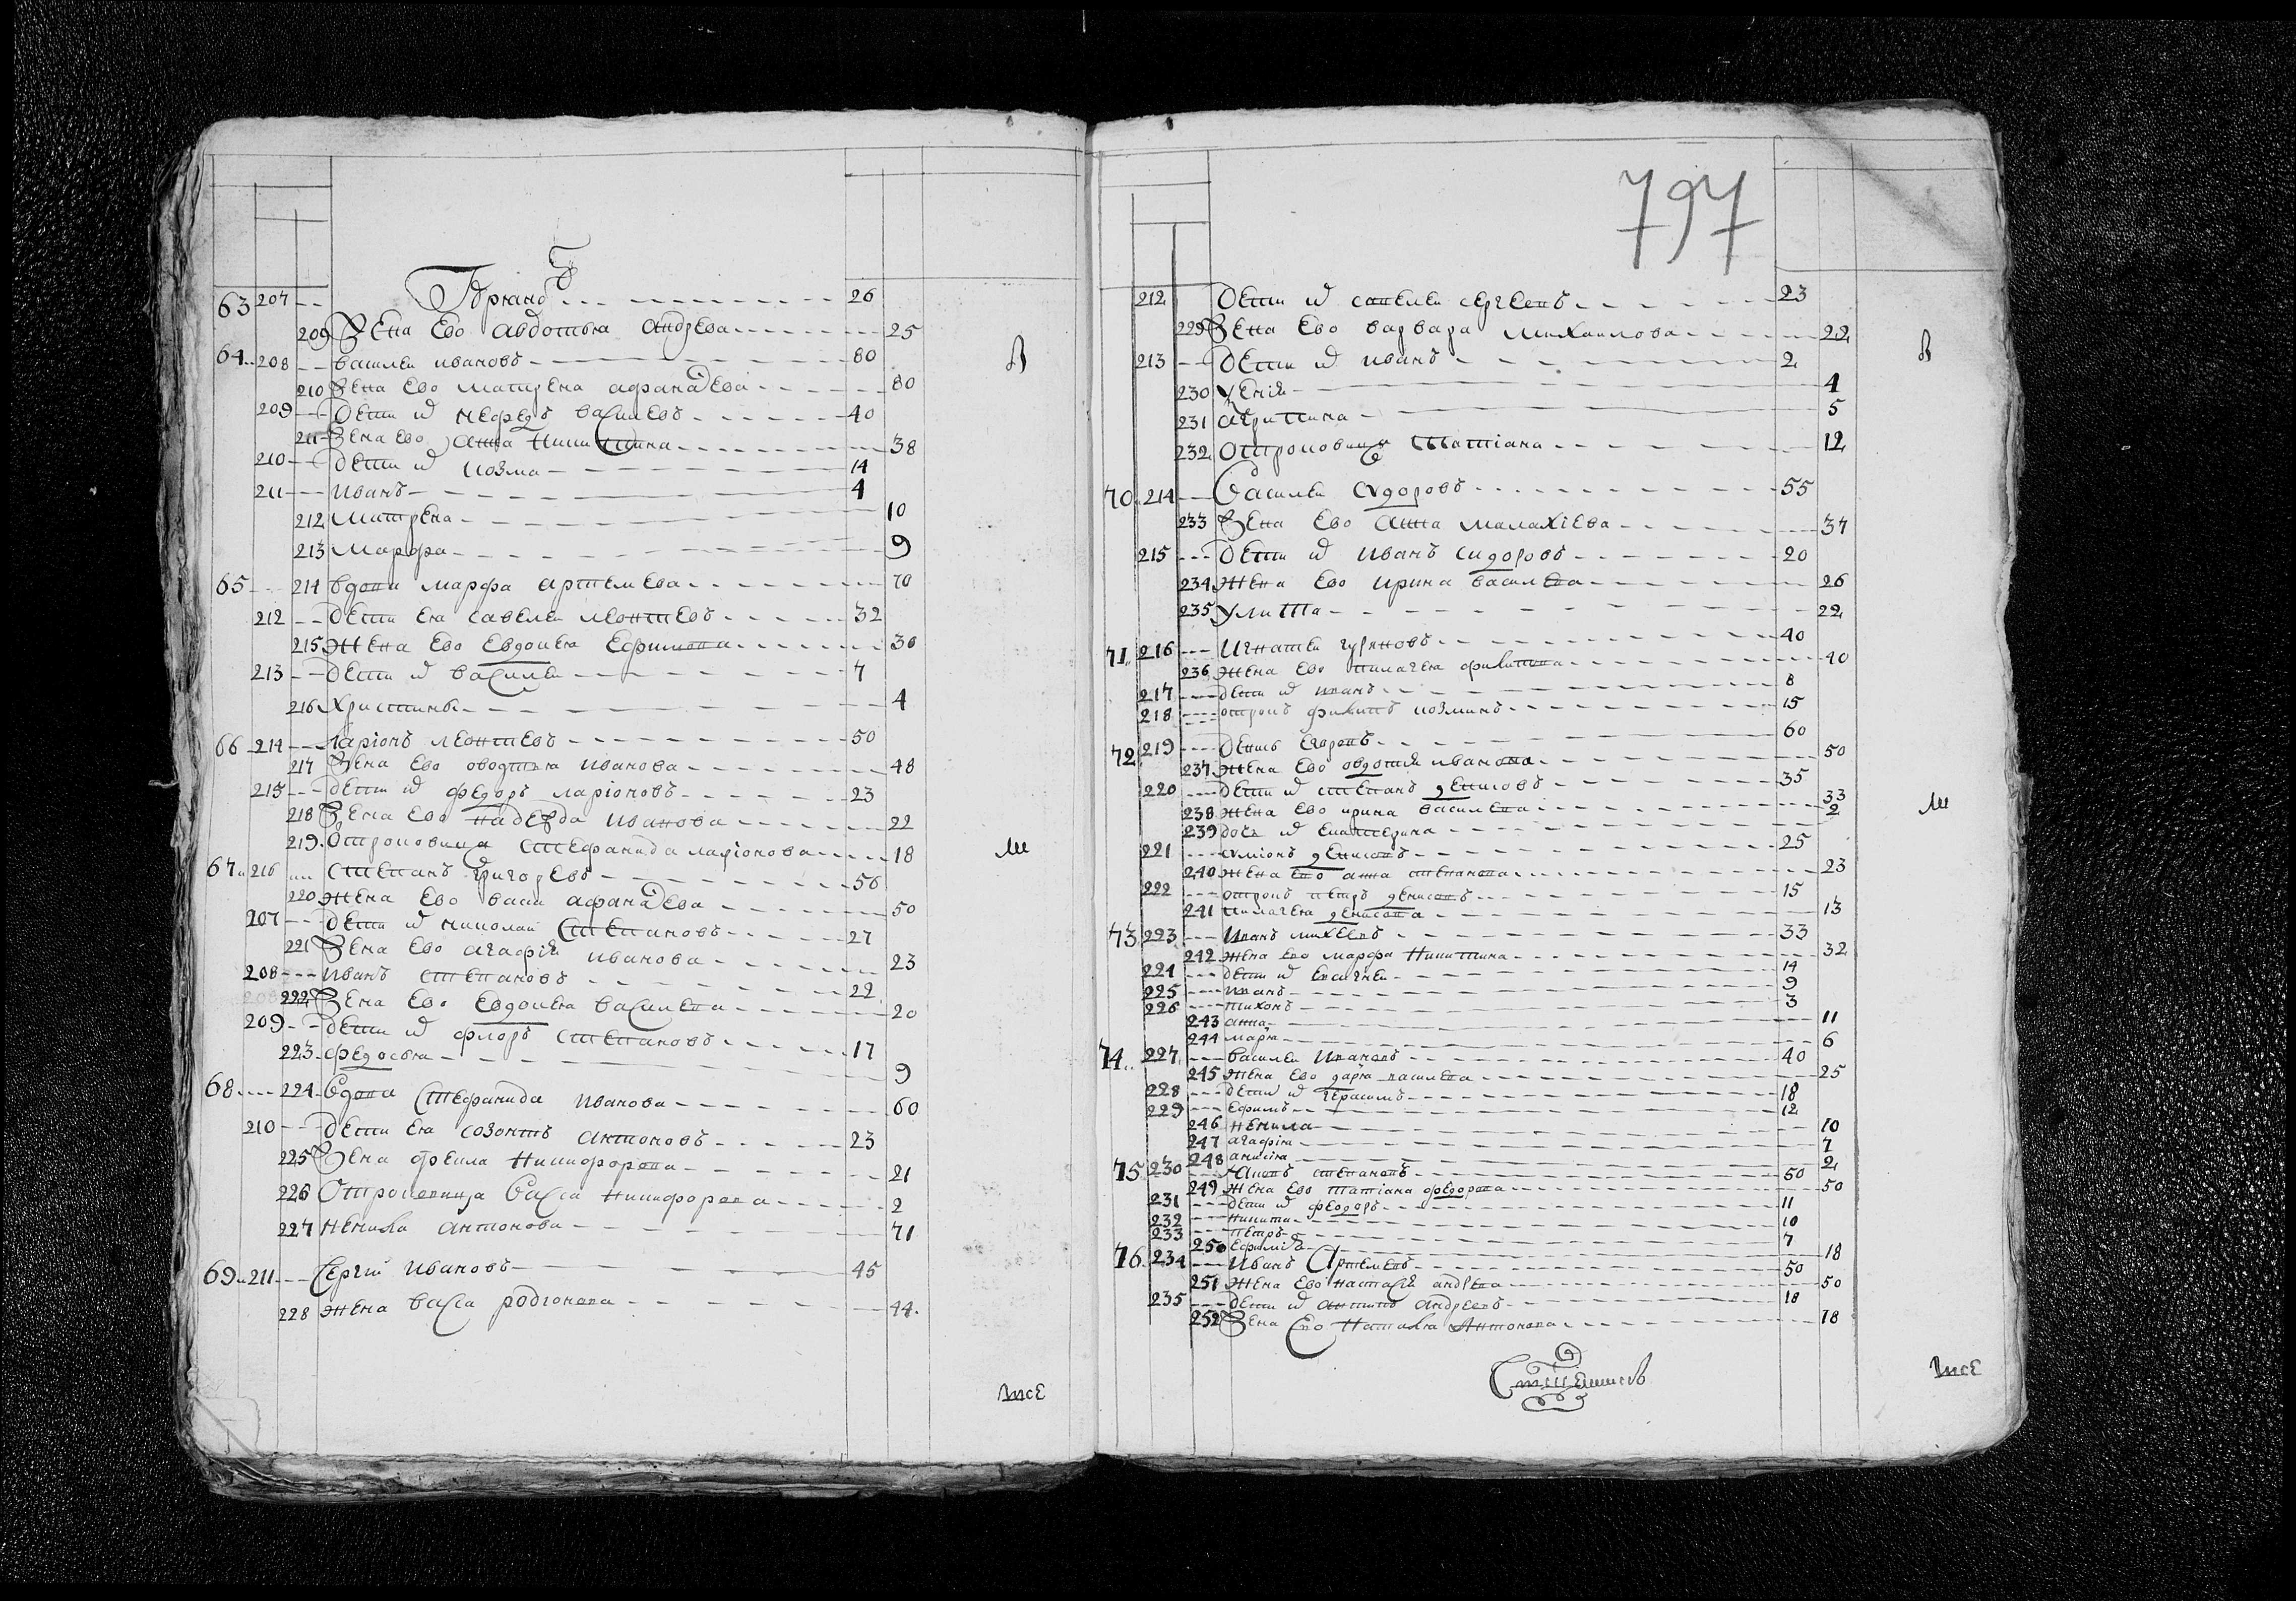 63 207 -- Адрианъ 26
209 Жена Ево авдотья андрева 25
64 208 -- василеи ивановъ 80
210 Жена Ево матрена афанасева 80
209 -- дети их мефедъ васильевъ 40
211 Жена Ево анна никитина 38
210 -- дети их козма 14
211 --- иванъ 4
212 матрена 10
213 марфа 9
65 214 вдова марфа артемева 70
212 -- дети Ея савелеи леонтиевъ 32
215 Жена Ево Евдокея Ефимова 30
213 -- дети их василеи 7
216 Христина 4
66 214 --- Ларіонъ леонтиевъ 50
217 Жена Ево овдотья иванова 48
215 --- дети их федоръ ларіоновъ 23
218 Жена Ево надежда иванова 22
219 Отроковица стефанида ларіонова 18
67 216 степанъ григоревъ 56
220 жена Ево васа афанасева 50
207 -- дети их николаи степановъ 27
221 Жена Ево агафия иванова 23
208 --- иванъ степановъ 22
222 Жена Ево Евдокея василева 20
209 -- дети их флоръ степановъ 17
223 федосья 9
68 224 вдова стефанида иванова 60
210 -- дети Ея созонтъ антоновъ 23
225 Жена фекла никифорова 21
226 Отроковица васса никифорова 2
227 ненила антонова 71
69 211 Сергій ивановъ 45
228 жена васса родіонова 44.
797
212 дети их савелеи сергеевъ 23
229 Жена Ево варвара михаилова 22
213 -- дети их иванъ 2
230 4
231 агрипина 5
232 Отроковица татіана 12
70 214 -- василеи сидоровъ 55
233 Жена Ево анна малахіева 37
215 --- дети их иванъ сидоровъ 20
234 жена Ево ирина василева 26
235 улита 22
71 216 --- игнатеи гуряновъ 40
236 жена Ево пелагея филипова 40
217 --- дети их иванъ 8
218 --- отрокъ филипъ козминъ 15
72 219 --- денисъ Егоровъ 60
237 жена Ево овдотия иванова 50
220 --- дети их степанъ денисовъ 35
238 жена Ево ирина василева 33
239 дочь их Екатерина 2
221 --- симіонъ денисовъ 25
240 жена Ево анна степанова 23
222 --- отрокъ петръ денисовъ 15
241 пелагея денисова 13
73 223 --- иванъ михеевъ 33
242 жена Ево марфа никитина 32
224 --- дети их Евсигнеи 14
225 --- иванъ 9
226 --- тихонъ 3
243 анна 11
244 марія 6
74 227 --- василеи ивановъ 40
245 жена Ево дарія василева 25
228 --- дети их герасимъ 18
229 --- Ефимъ 12
246 ненила 10
247 агафія 7
248 анисія 2
75 230 яковъ степановъ 50
249 жена Ево татіана федорова 50
231 --- дети их феодоръ 11
232 --- никита 10
233 --- петръ 7
250 Ефимія 18
76 234 --- иванъ Артемевъ 50
251 жена Ево настасия андрева 50
235 --- дети их антипъ андреевъ 18
252 Жена Ево наталья Антонова 18